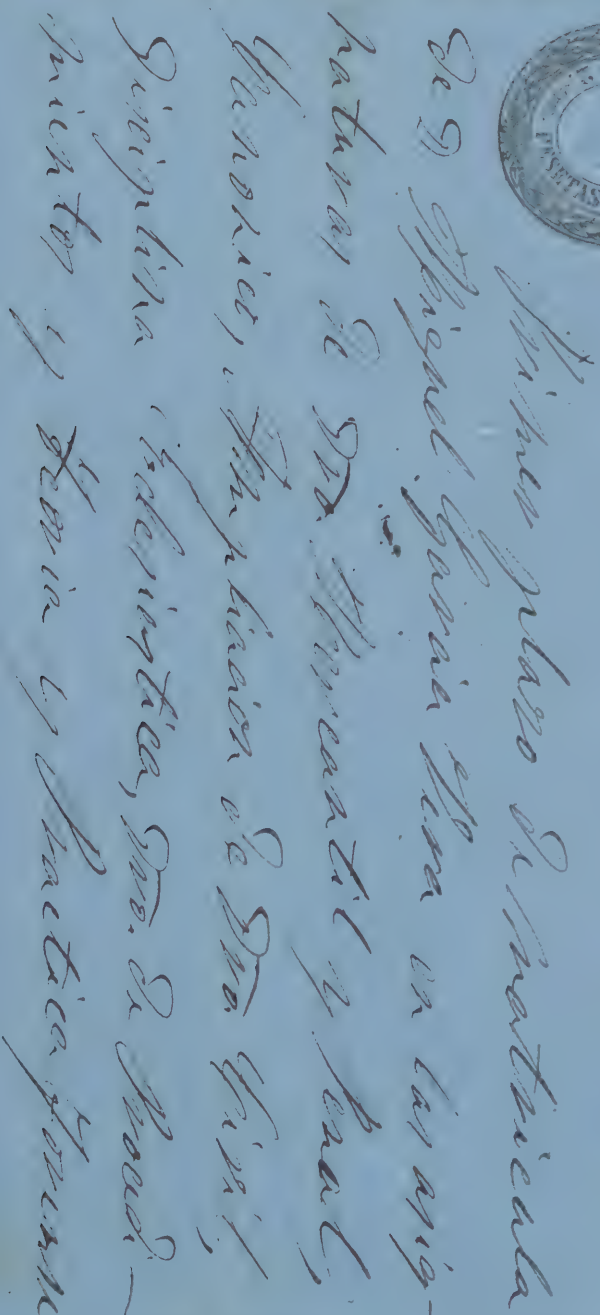 PESETAS
Primer plazo de matricula
de D Miguel Garcia en las asig-
naturas de Dro. Mercantil y Penal,
Canonico, Ampliacion de Dro Civil,
Disciplina eclesiastica, Dro. de Procedi-
mientos y teoria y Practica forense